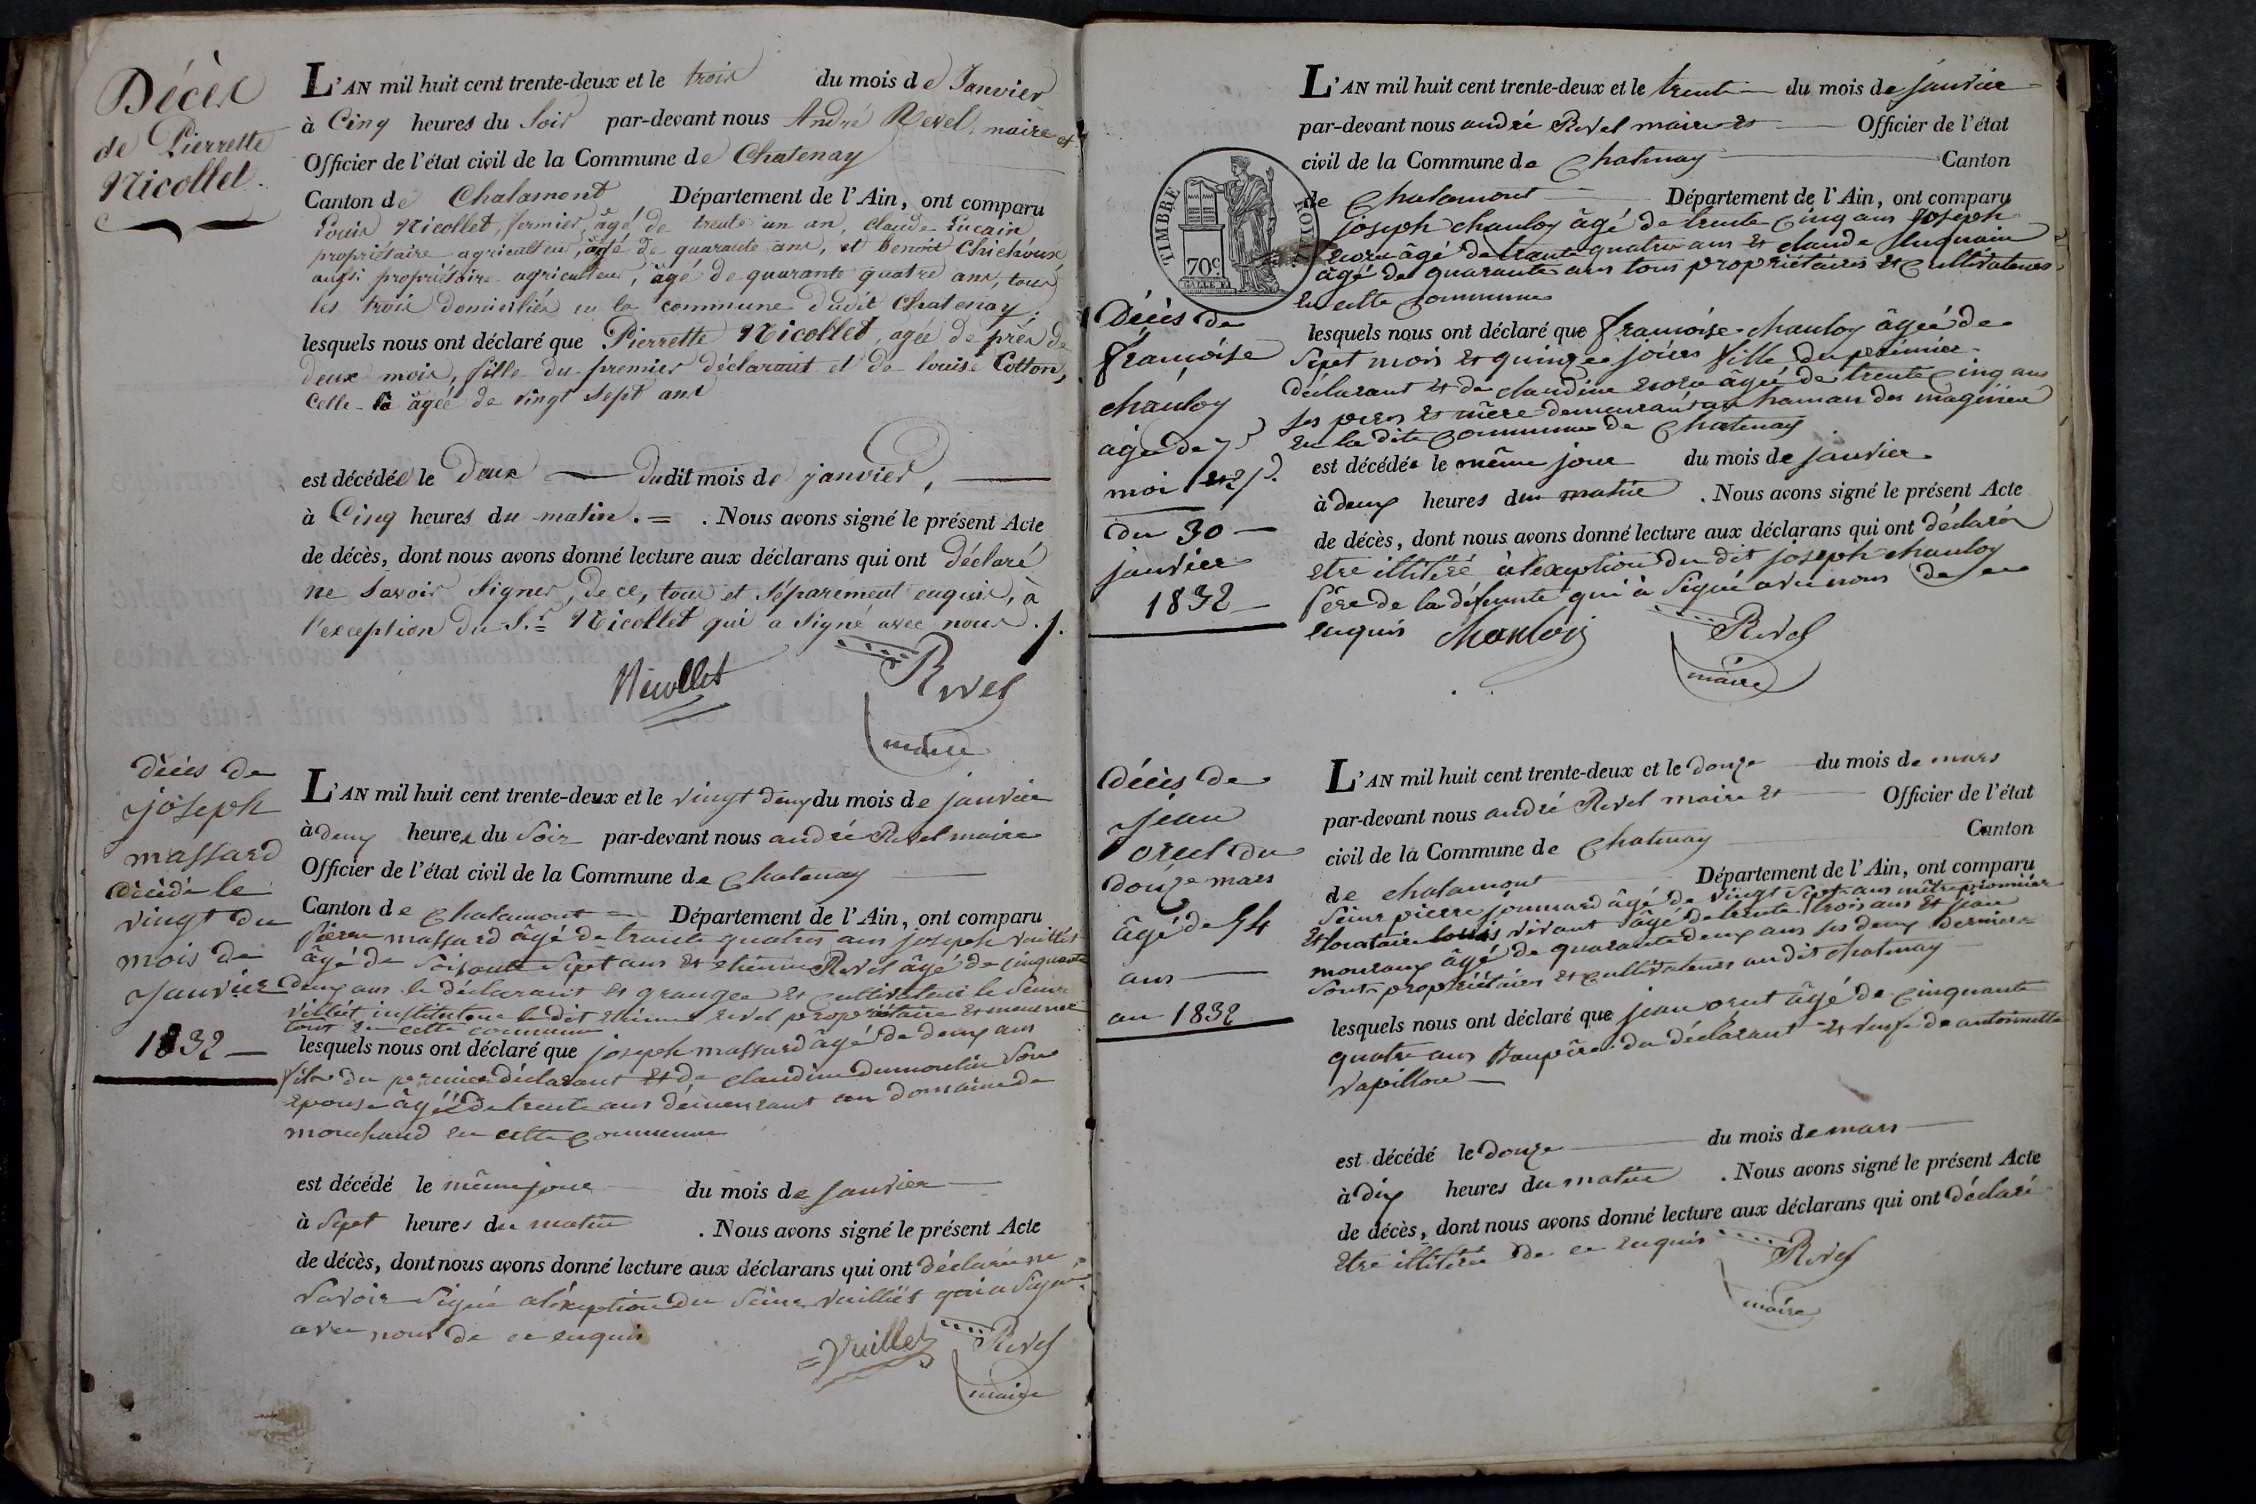 Décès
de Pierrette
Nicollet.
L'AN mil huit cent trente-deux et le trois du mois de Janvier
à Cinq heures du Soir par-devant nous André Revel, maire et
Officier de l'état civil de la Commune de Chatenay
Canton de Chalamont, Département de l'Ain, ont comparu
Louis Nicollet, fermier, âgé de trente un an, claude
propriétaire agriculteur, âgé de quarante ans, et Benoît
aussi propriétaire agriculteur, âgé de quarante quatre ans, tous
les trois domiciliés en la commune dudit Chatenay.
lesquels nous ont déclaré que Pierrette Nicollet, agée de près de
deux mois, fille du premier déclarant et de louise Cotton,
Celle-là âgée de vingt sept ans
est décédée le Deux dudit mois de janvier,
à Cinq heures du matin. = . Nous avons signé le présent Acte
de décès, dont nous avons donné lecture aux déclarans qui ont déclaré
ne Savoir Signer, de ce, tous et séparément enquis, à
l'exception du S.r Nicollet qui a Signé avec nous ./.
Nicollet
Revel
maire
décès de
joseph
massard
décédé le
vingt du
mois de
Janvier
1832
L'AN mil huit cent trente-deux et le vingt deux du mois de janvier
à deux heures du Soir par-devant nous andré Revel maire
Officier de l'état civil de la Commune de Chatenay
Canton de Chalamont Département de l'Ain, ont comparu
pierre massard âgé de trante quatres ans joseph vuillet
âgé de Soisante Sept ans et etienne Revel âgé de cinquante
deux ans le déclarant et granger et cultivateur le Sieur
villiet instituteur le dit etienne revel propriétaire et meunier
tout en cette commune
lesquels nous ont déclaré que joseph massard âgé de deux ans
fils du premier déclarant et de claudine dumoulin Son
epouse âgéé de trente ans demeurant au domaine de
mouchand en cette commune
est décédé le même jour du mois de janvier
à Sept heures du matin . Nous avons signé le présent Acte
de décès, dont nous avons donné lecture aux déclarans qui ont déclaré ne
Savoir Signé a léxeption du Sieur vuilliet qui a Signé
avec nous de ce enquis
Vuillet
Revel
maire
TIMBRE ROYAL
70c
Décès de
françoise
chanloy
agée de 7
moi et 15 j.
du 30
janvier
1832
L'AN mil huit cent trente-deux et le trente du mois de janvier
par-devant nous andré Revel maire et Officier de l'état
civil de la Commune de Chatenay Canton
de Chalamont Département de l'Ain, ont comparu
joseph chanloy âgé de trente cinq ans joseph
âgé de trante quatre ans et claude
âgé de quarante ans tous propriétaires et cultivateurs
en cette commune
lesquels nous ont déclaré que françoise chanloy âgéé de
Sept mois et quinze jours fille du premier
déclarant et de claudine âgéé de trente cinq ans
ses peres et mère demeurant au hamau des
en la dite commune de Chatenay
est décédée le même jour du mois de janvier
à deux heures du matin . Nous avons signé le présent Acte
de décès, dont nous avons donné lecture aux déclarans qui ont déclarés
etre illitéré à léxeption du dit joseph chanloy
père de la défunte qui à Signé avec nous de ce
enquis chanloy
Revel
maire
Décès de
jean
oreut du
douze mars
âgé de 54
ans
an 1832
L'AN mil huit cent trente-deux et le douze du mois de mars
par-devant nous andré Revel maire et Officier de l'état
civil de la Commune de Chatenay Canton
de chalamont Département de l'Ain, ont comparu
Sieur pierre âgé de vingt Sept ans
et locataire louis vivant âgé de trente trois ans et jean
âgé de quarante deux ans les deux derniers
Sont propriétaires et cultivateurs au dit chatenay
lesquels nous ont déclaré que jean oreut âgé de cinquante
quatre ans Baupère du déclarant et veuf de antoinette
vapillon
est décédé le douze du mois de mars
à dix heures du matin . Nous avons signé le présent Acte
de décès, dont nous avons donné lecture aux déclarans qui ont déclaré
etre illitéré de ce enquis
Revel
maire